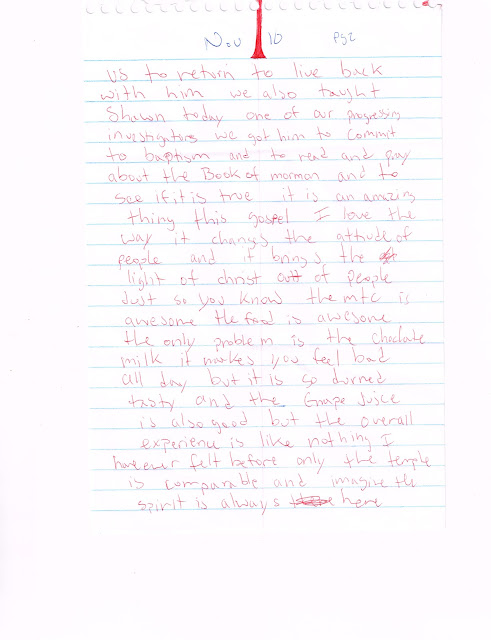 Nov 10 Pg2
us to return to live back
with him we also taught
Shawn today one of our progressing
investigators we got him to commit
to baptism and to read and pray
about the Book of mormon and to
see if it is true it is an amazing
thing this gospel I love the
way it changes the attitude of
people and it brings the
light of christ out of people
Just so you know the mtc is
awesome the food is awesome
the only problem is the choclate
milk it makes you feel bad
all day but it is so durned
tasty and the Grape Juice
is also good but the overall
experience is like nothing I
have ever felt before only the temple
is comparable and imagine the
spirit is always here